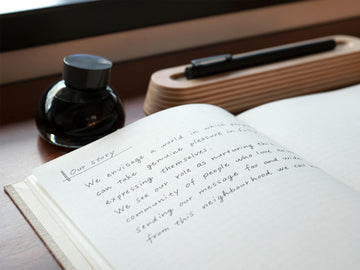 Our story
We envisage a world in which
can take genuine pleasure in
expressing themselves.
We see our role as nurturing the
community of people who love
sending our message far and wide
from this neighbourhood we